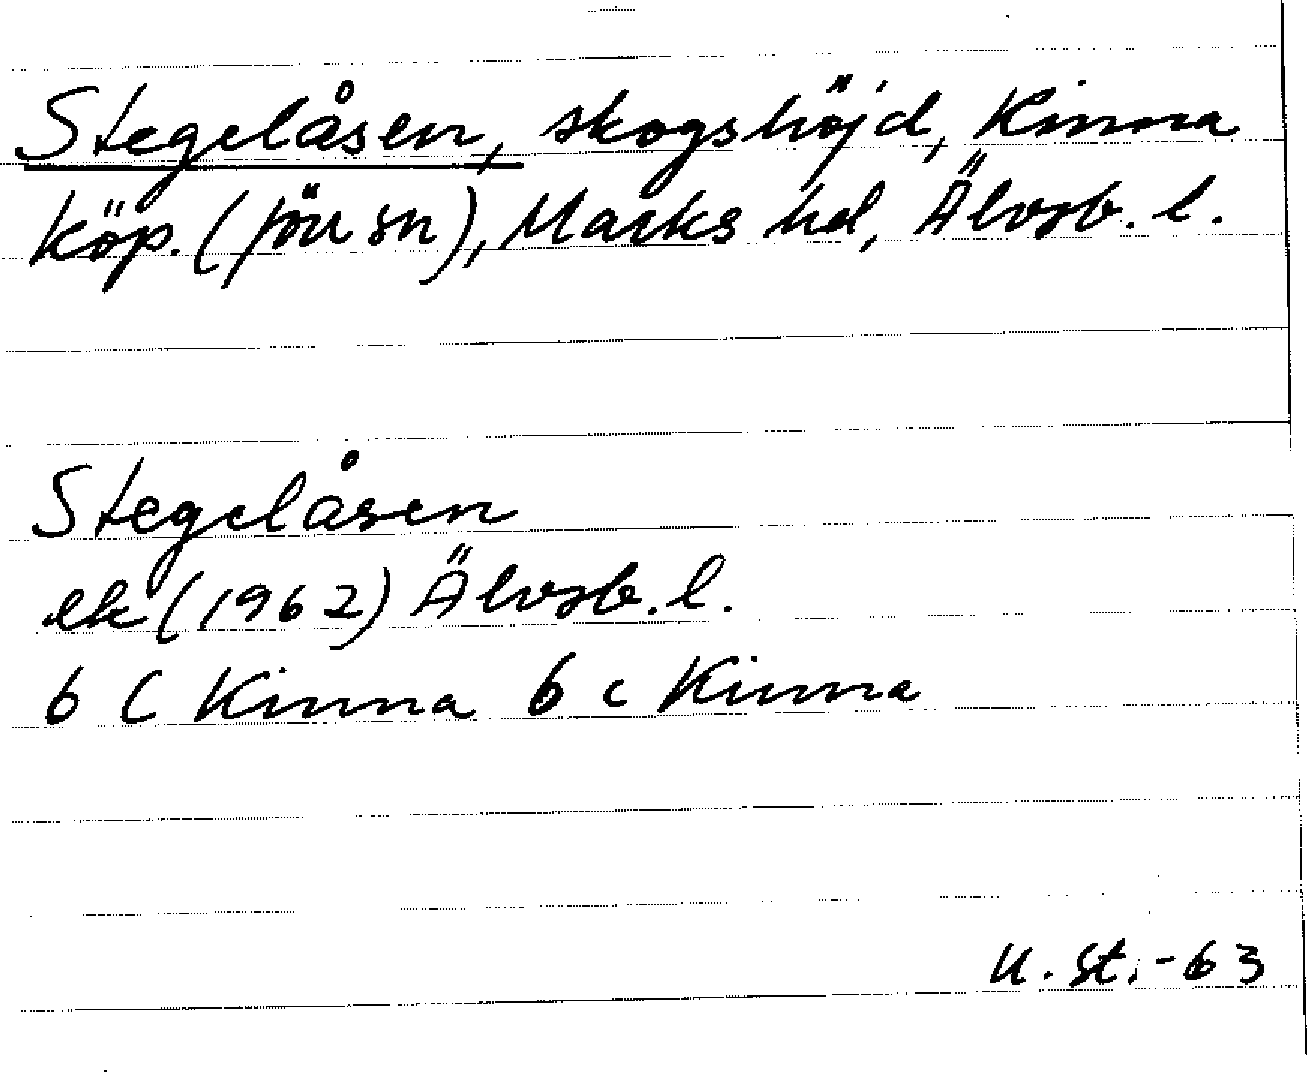 Stegelåsen, skogshöjd, Kinna
köp. (förr sn), Marks hd, Älvsb. l.
Stegelåsen
ek (1962) Älvsb. l.
6 C Kinna 6 c Kinna
U. St. -63